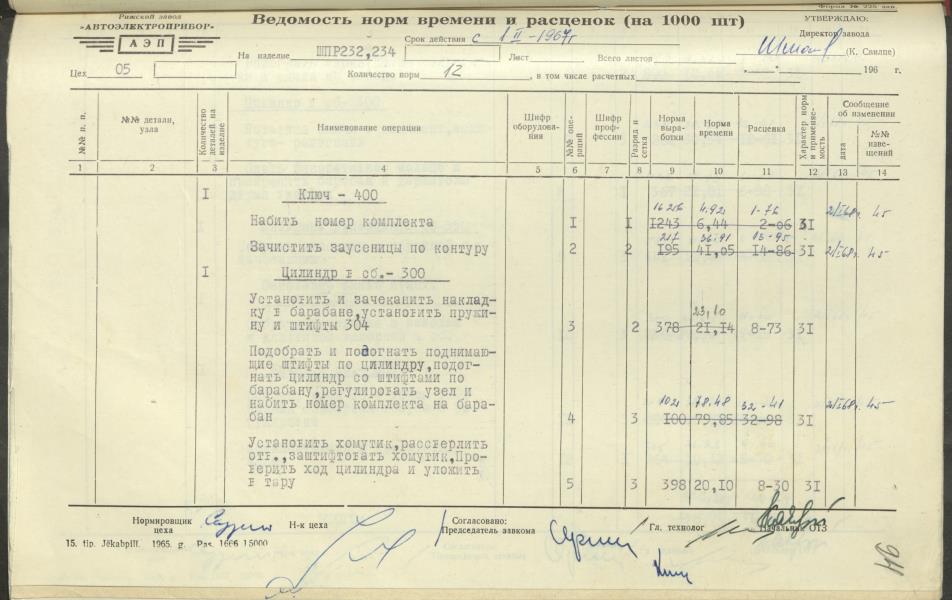 Форма № 226 зав.
Рижский завод
«АВТОЭЛЕКТРОПРИБОР»
АЭП
Ведомость норм времени и расценок (на 1000 шт)
УТВЕРЖДАЮ:
Директор завода
(К. Свилпе)
„ “ 196 г.
Срок действия с 1 II - 1967г
На изделие ШПР232,234 Лист Всего листов
Цех 05 Количество норм 12, в том числе расчетных
№№ п. п. №№ детали, узла Количество деталей на изделие Наименование операции Шифр оборудования №№ операций Шифр профессии Разряд и сетка Норма выработки Норма времени Расценка Характер норм и применяемость Сообщение об изменении
дата №№ извещений
1 2 3 4 5 6 7 8 9 10 11 12 13 14
I Ключ - 400
1626 4.92 1-76 2/I68г. 45
Набить номер комплекта I I I243 6,44 2-06 3I
217 36.91 13-95
Зачистить заусеницы по контуру 2 2 I95 4I,05 I4-86 3I 2/I68г. 45
I Цилиндр в сб.- 300
Установить и зачеканить наклад-
ку в барабане,установить пружи- 23,10
ну и штифты 304 3 2 378 2I,I4 8-73 3I
Подобрать и подогнать поднимаю-
щие штифты по цилиндру,подог-
нать цилиндр со штифтами по
барабану,регулировать узел и
набить номер комплекта на бара- 102 78.48 32-41 2/I68г. 45
бан 4 3 I00 79,85 32-98 3I
Установить хомутик,рассверлить
отв.,заштифтовать хомутик,Про-
верить ход цилиндра и уложить
в тару 5 3 398 20,I0 8-30 3I
Нормировщик цеха Н-к цеха Согласовано:
Председатель завкома Гл. технолог Начальник ОТЗ
15. tip. Jēkabpilī. 1965. g. Pas. 1666 15000
94